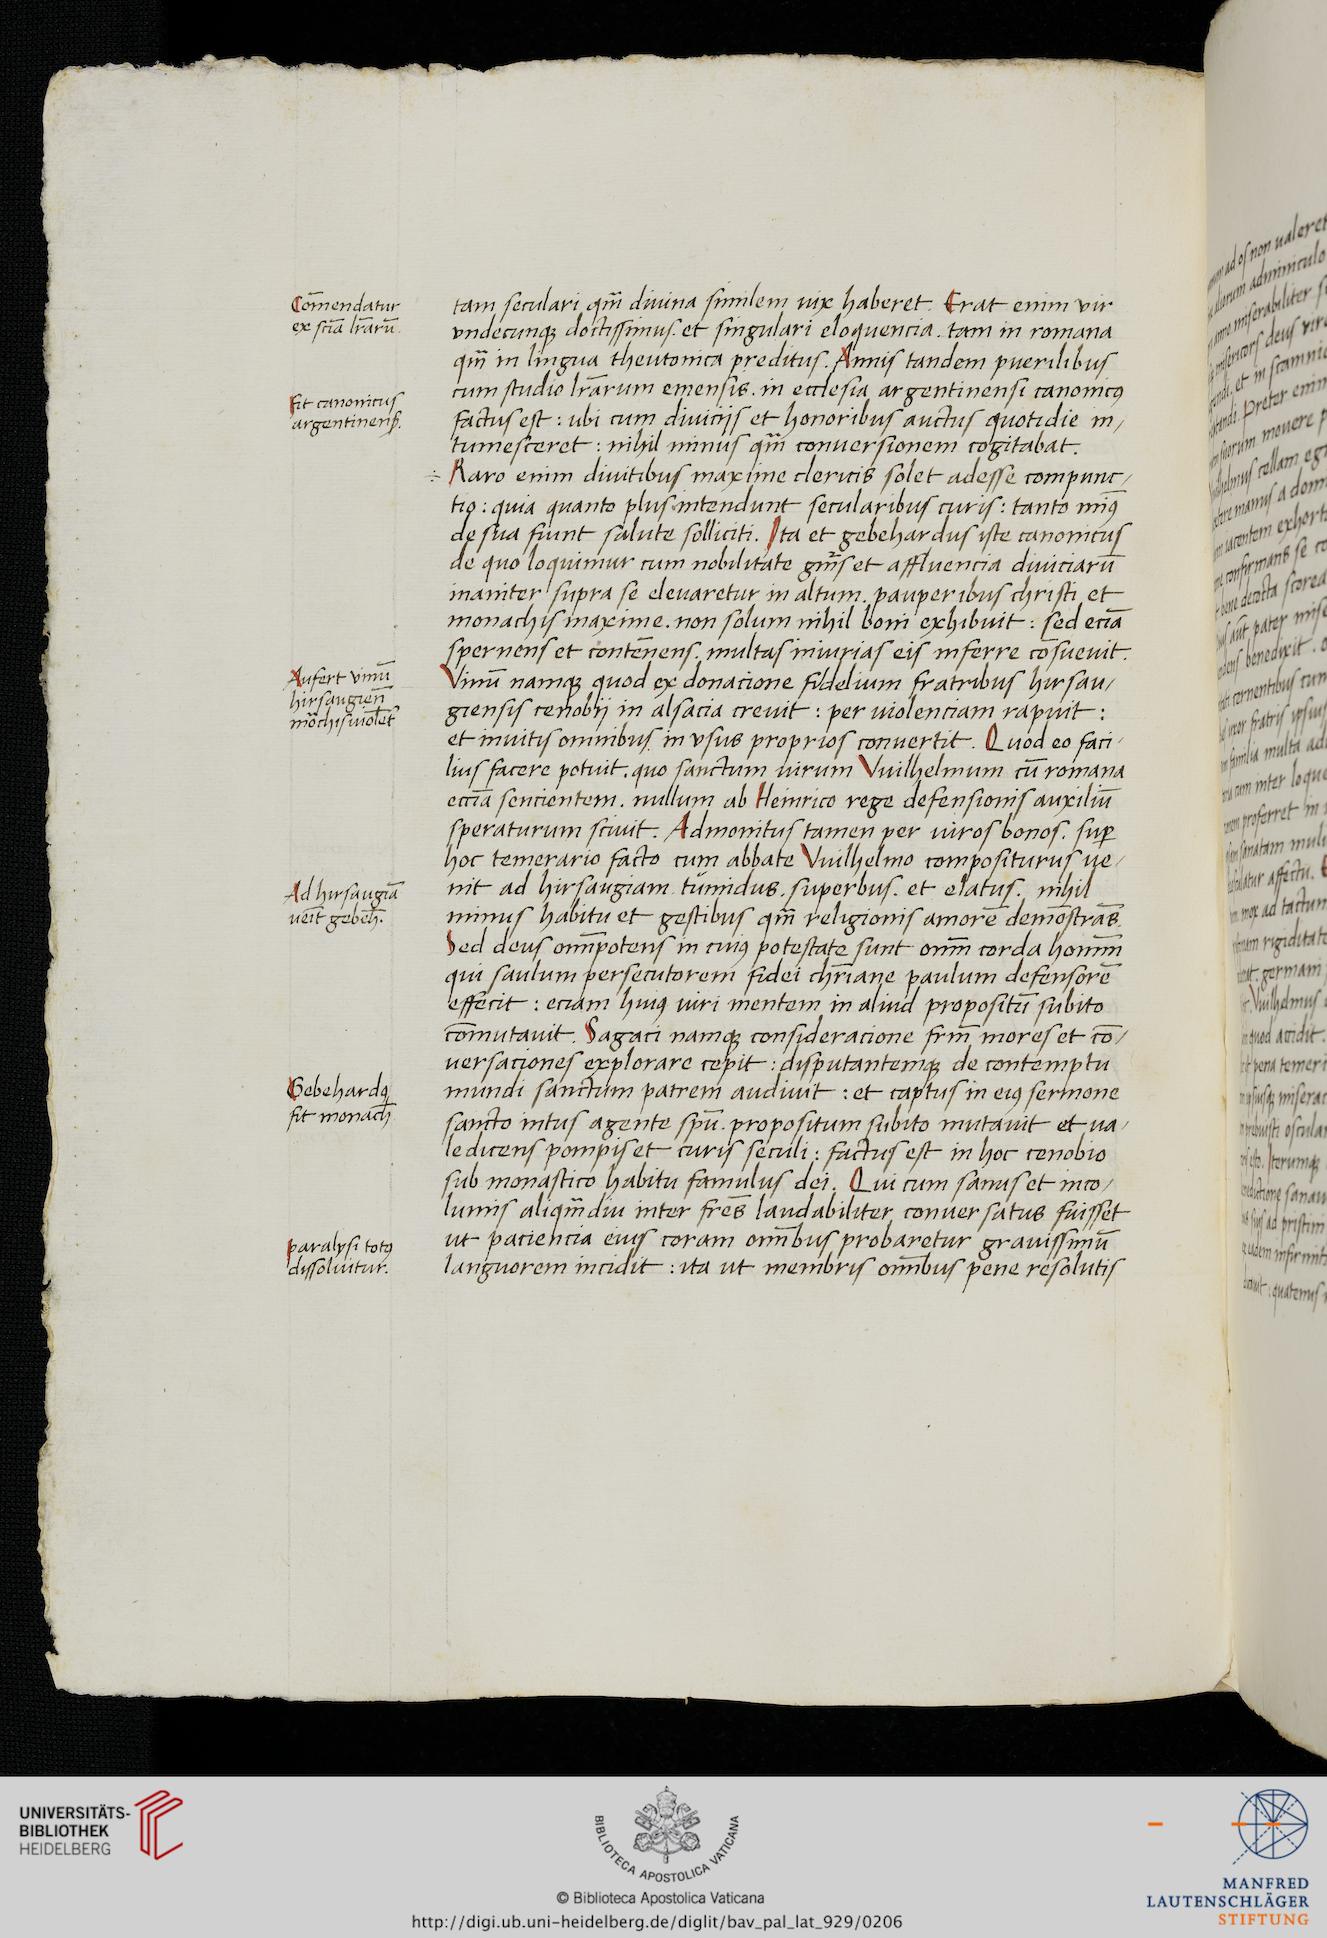 Cõmendatur
ex sciã lr̃arũ.
Fit canonicus
argentineñ.
Aufert vinũ
hirsaugieñ
mõchis violet̃
Ad hirsaugiã
ueit̃ gebeh̃.
Gebehardꝯ
fit monach̃
paralysi totꝯ
dissoluitur.
tam seculari qm̃ diuina similem uix haberet. Erat enim vir
vndecunqꝫ doctissimus. et singulari eloquencia. tam in romana
qm̃ in lingua theutonica preditus. Annis tandem puerilibus
cum studio lr̃arum emensis. in ecclesia argentinensi canonicꝯ
factus est : ubi cum diuicijs et honoribus auctus quotidie in/
tumesceret : nihil minus qm̃ conuersionem cogitabat.
Raro enim diuitibus maxime clericis solet adesse compunc/
tio : quia quanto plus intendunt secularibus curis : tanto minꝯ
de sua fiunt salute solliciti. Ita et gebehardus iste canonicus
de quo loquimur cum nobilitate gñis et affluencia diuiciarũ
inaniter supra se eleuaretur in altum. pauperibus christi et
monachis maxime. non solum nihil boni exhibuit : sed eciã
spernens et contẽnens. multas iniurias eis inferre cõsueuit.
Vinũ namqꝫ quod ex donacione fidelium fratribus hirsau/
giensis cenobij in alsacia creuit : per uiolenciam rapuit :
et inuitis omnibus in vsus proprios conuertit. Quod eo faci/
lius facere potuit. quo sanctum uirum Vuilhelmum cũ romana
eccĩa sencientem. nullum ab Heinrico rege defensionis auxiliũ
speraturum sciuit. Admonitus tamen per uiros bonos. suꝑ
hoc temerario facto cum abbate Vuilhelmo compositurus ue/
nit ad hirsaugiam tumidus. superbus. et elatus. nihil
minus habitu et gestibus qm̃ religionis amorẽ demõstrãs.
Sed deus omĩpotens in cuiꝯ potestate sunt omĩm corda homĩm
qui saulum persecutorem fidei chr̃iane paulum defensorẽ
effecit : eciam huiꝯ uiri mentem in aliud propositũ subito
cõmutauit. Sagaci namqꝫ consideracione frm̃ mores et cõ/
versaciones explorare cepit : disputantemqꝫ de contemptu
mundi sanctum patrem audiuit : et captus in eiꝯ sermone
sancto intus agente spũ. propositum subito mutauit et ua/
ledicens pompis et curis seculi : factus est in hoc cenobio
sub monastico habitu famulus dei. Qui cum sanus et inco/
lumis aliqm̃diu inter fr̃es laudabiliter conuersatus fuisset
ut paciencia eius coram omĩbus probaretur grauissimũ
languorem incidit : ita ut membris omĩbus pene resolutis
UNIVERSITÄTS-
BIBLIOTHEK
HEIDELBERG
BIBLIOTECA APOSTOLICA VATICANA
© Biblioteca Apostolica Vaticana
http://digi.ub.uni-heidelberg.de/diglit/bav_pal_lat_929/0206
MANFRED
LAUTENSCHLÄGER
STIFTUNG